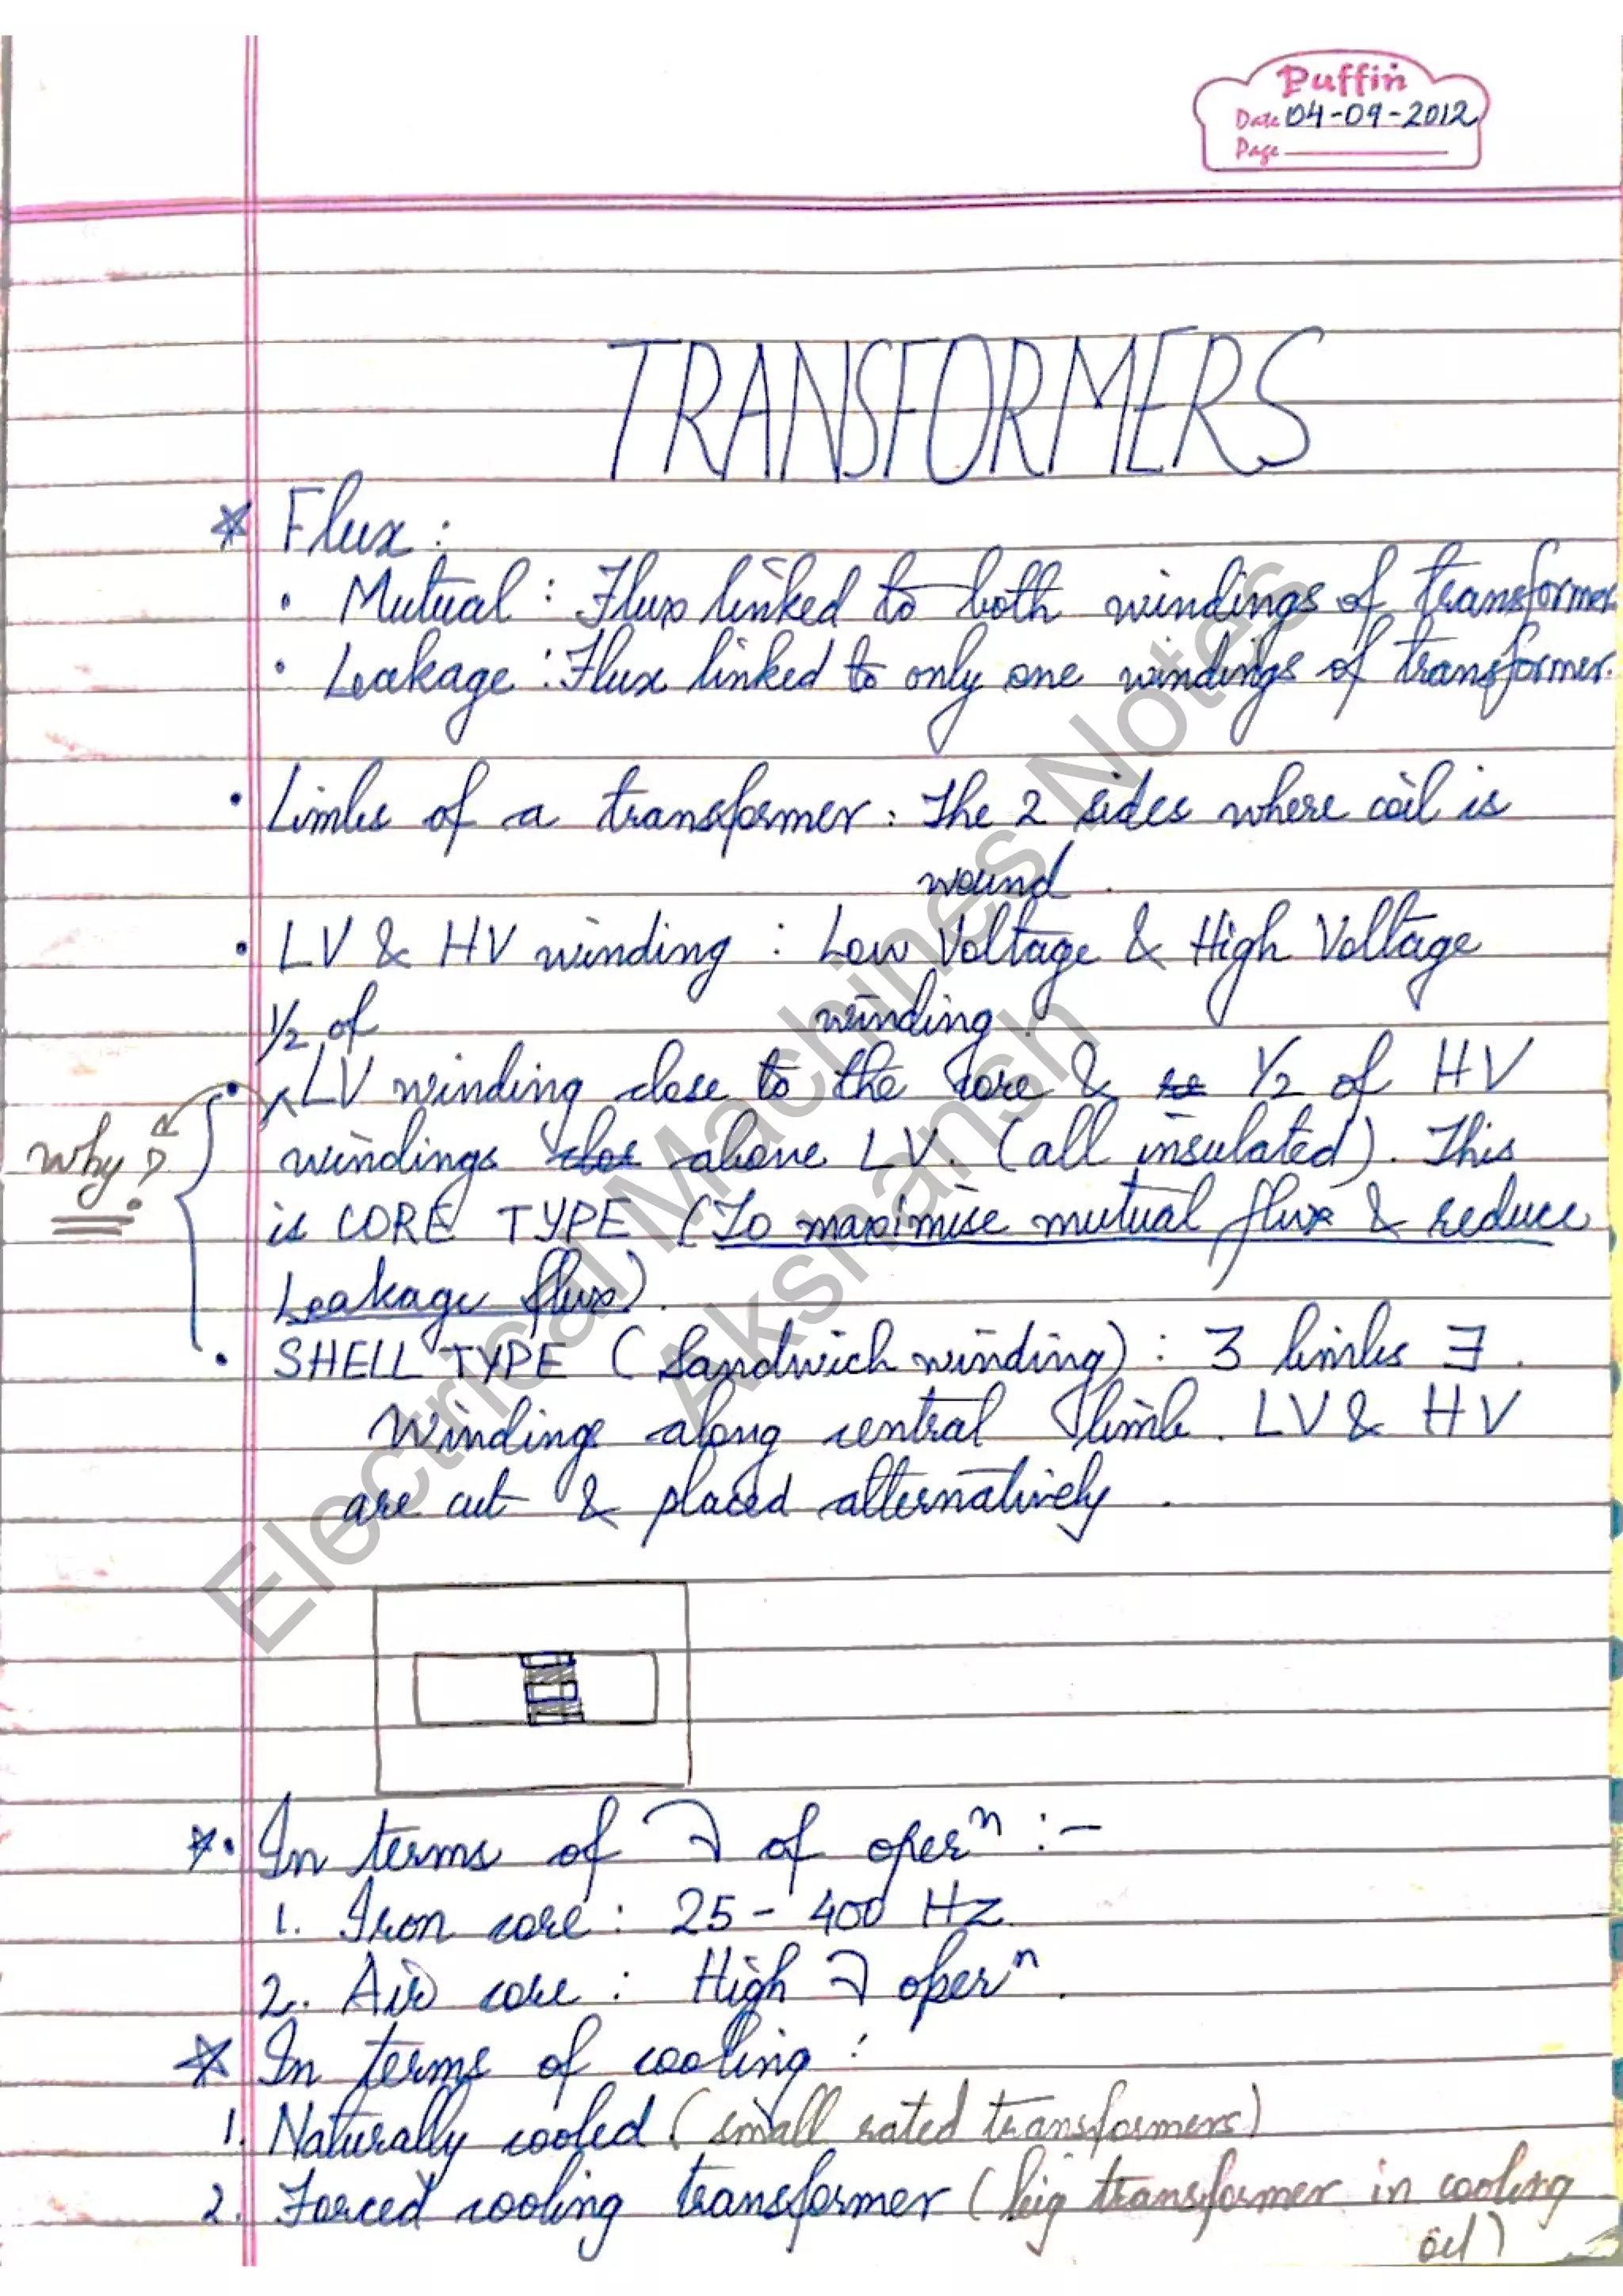 Puffin
Date 04-09-2012
Page
TRANSFORMERS
* Flux :
• Mutual : Flux linked to both windings of transformer
• Leakage : Flux linked to only one windings of transformer.
• Limbs of a transformer : The 2 sides where coil is
wound.
• LV & HV winding : Low Voltage & High Voltage
winding.
1/2 of
• LV winding close to the core & 1/2 of HV
why ?
windings above LV. (all insulated). This
is CORE TYPE (To maximise mutual flux & reduce
Leakage flux).
• SHELL TYPE (Sandwich winding) : 3 limbs ∃.
Windings along central limb. LV & HV
are cut & placed alternatively.
*• In terms of of operⁿ :-
1. Iron core : 25 - 400 Hz.
2. Air core : High operⁿ.
* In terms of cooling :
1. Naturally cooled (small rated transformers)
2. Forced cooling transformer (big transformer in cooling
oil)
Electrical Machines Notes
Akshansh